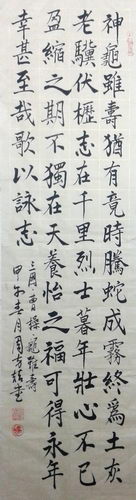 神龜雖壽猶有竟時騰蛇成霧終為土灰
老驥伏櫪志在千里烈士暮年壯心不已
盈縮之期不獨在天養怡之福可得永年
幸甚至哉歌以詠志
三國曹操龜雖壽
甲午春月周方書